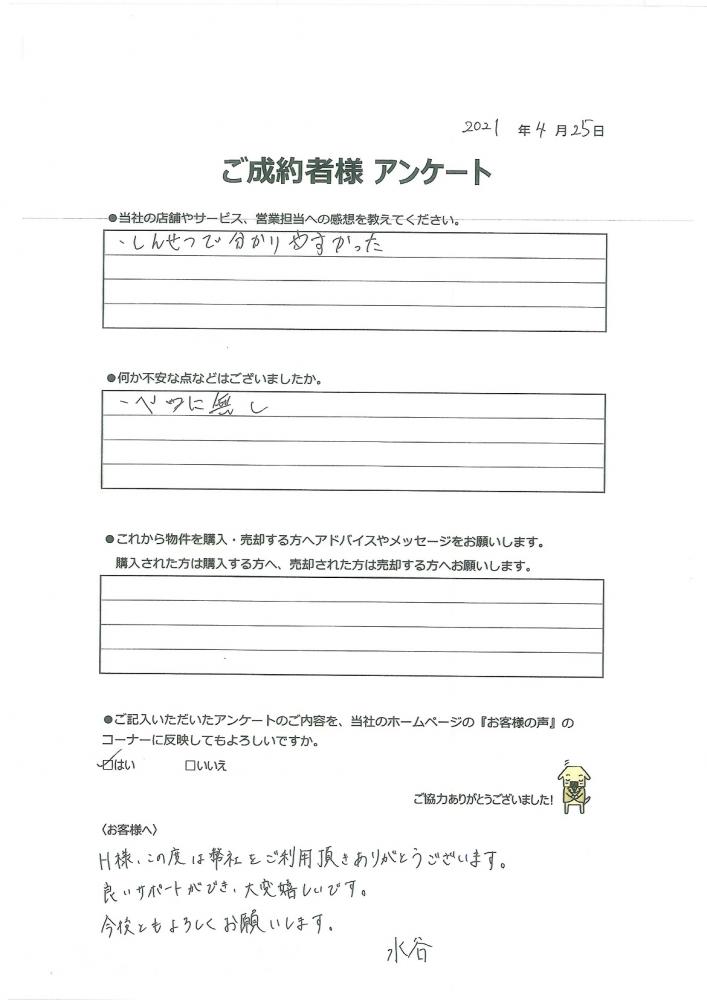 2021 年 4 月 25日
ご成約者様 アンケート
●当社の店舗やサービス、営業担当への感想を教えてください。
・しんせつで分かりやすかった
●何か不安な点などはございましたか。
・ベツに無し
●これから物件を購入・売却する方へアドバイスやメッセージをお願いします。
購入された方は購入する方へ、売却された方は売却する方へお願いします。
●ご記入いただいたアンケートのご内容を、当社のホームページの『お客様の声』の
コーナーに反映してもよろしいですか。
☑はい □いいえ
ご協力ありがとうございました!
〈お客様へ〉
H様、この度は弊社をご利用頂きありがとうございます。
良いサポートができ、大変嬉しいです。
今後ともよろしくお願いします。
水谷